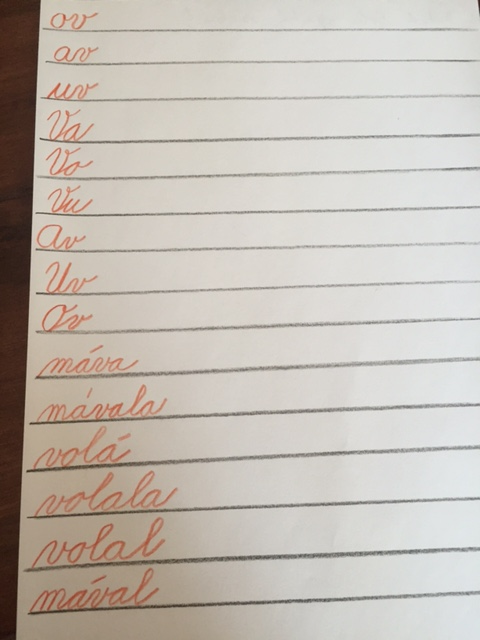 ov
av
uv
Va
Vo
Vu
Av
Uv
Ov
máva
mávala
volá
volala
volal
mával